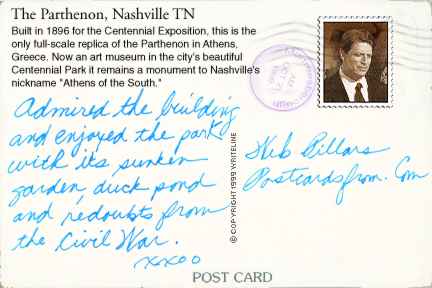 The Parthenon, Nashville TN
Built in 1896 for the Centennial Exposition, this is the
only full-scale replica of the Parthenon in Athens,
Greece. Now an art museum in the city's beautiful
Centennial Park it remains a monument to Nashville's
nickname "Athens of the South."
Admired the building
and enjoyed the park
with its sunken
garden, duck pond
and redoubts from
the Civil War.
xxoo
© COPYRIGHT 1999 WRITELINE
Pillars
Postcardsfrom.Com
POST CARD